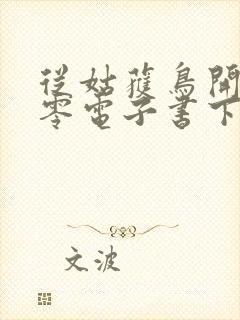 從姑獲鳥開
零電子書下
文波